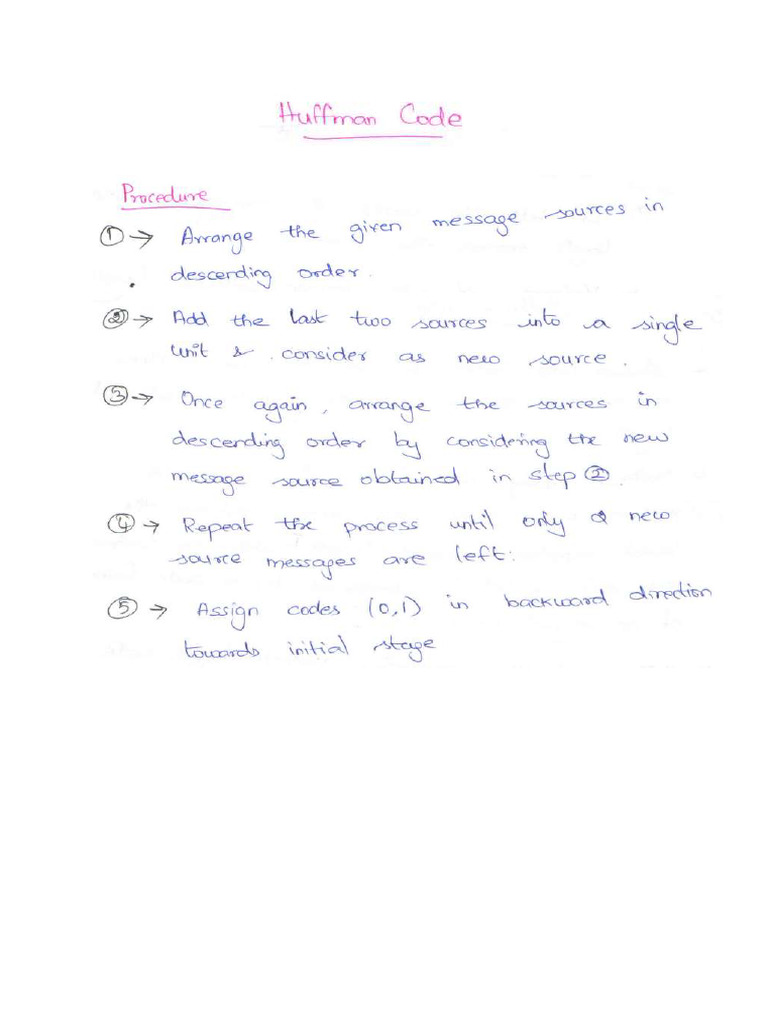 Huffman Code
Procedure
① → Arrange the given message sources in
descending order.
② → Add the last two sources into a single
unit & consider as new source.
③ → Once again, arrange the sources in
descending order by considering the new
message source obtained in step ②.
④ → Repeat the process until only 2 new
source messages are left:
⑤ → Assign codes (0,1) in backward direction
towards initial stage